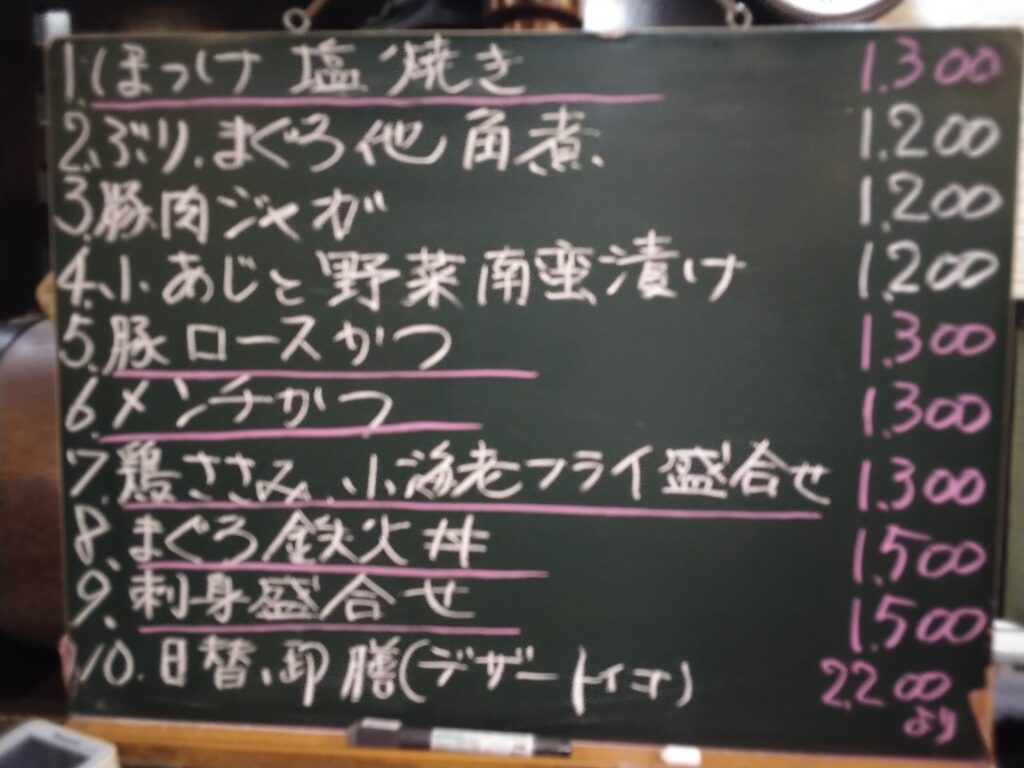 1. ほっけ 塩焼き 1.300
2. ぶり、まぐろ他角煮 1.200
3. 豚肉ジャガ 1.200
4. 小あじと野菜南蛮漬け 1.200
5. 豚ロースかつ 1.300
6. メンチかつ 1.300
7. 鶏ささみ、小海老フライ盛合せ 1.300
8. まぐろ鉄火丼 1.500
9. 刺身盛合せ 1.500
10. 日替、御膳(デザート 2.200
より